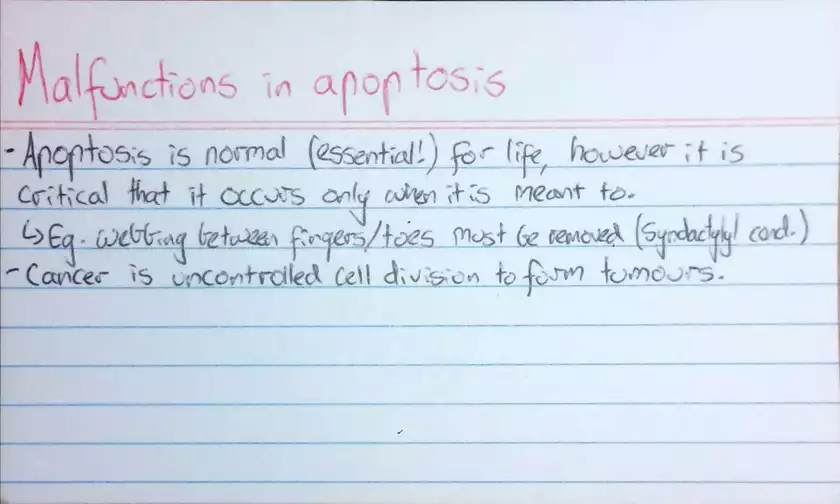 Malfunctions in apoptosis
- Apoptosis is normal (essential!) for life, however it is
critical that it occurs only when it is meant to.
↳ Eg. webbing between fingers/toes must be removed (Syndactylyl cond.)
- Cancer is uncontrolled cell division to form tumours.